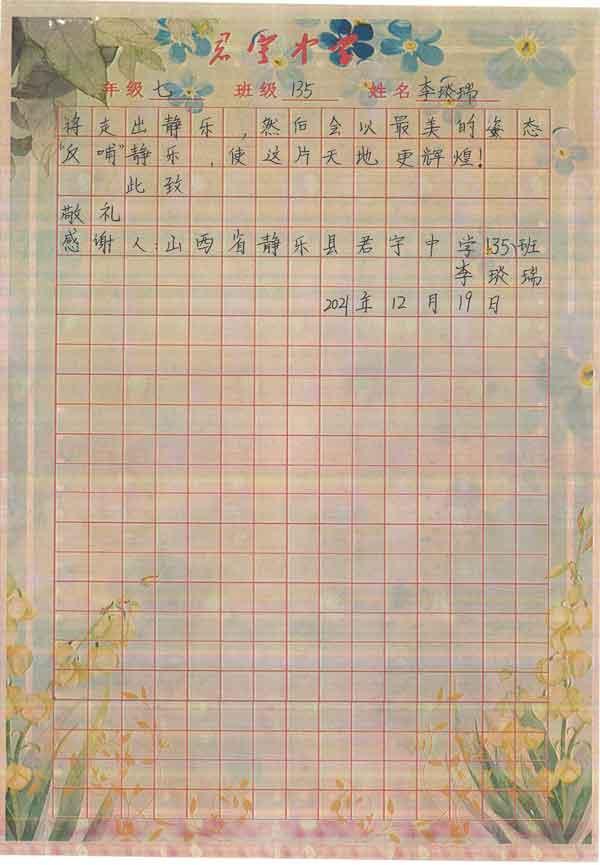 君宇中学
年级 七 班级 135 姓名 李璇瑞
将走出静乐,然后会以最美的姿态
"反哺"静乐,使这片天地更辉煌!
此致
敬礼
感谢人:山西省静乐县君宇中学135班
李璇瑞
2021年12月19日